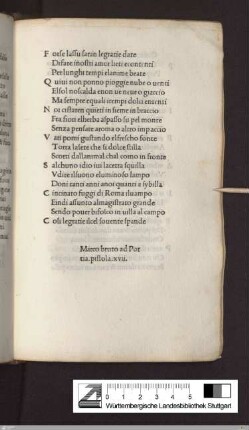 F orse lassu saran le gratie date
Di fare i nostri amor lieti e contenti
Per lunghi tempi e lamme beate
Q uiui non ponno pioggie nube o uenti
El sol no scalda mon ue neue o giaccio
Ma sempre equali tempi dolci e attenti
N oi cestarem quieti in sieme in braccio
Fra fiori e lherba al passo su pel monte
Senza pensare aroma o altro impaccio
V ari pomi gustando el fresco fonte
Torra la sete che si dolce stilla
S alchuno idio iui la certa squilla
Vdire il suono e luminoso lampo
Doni tanti anni a noi quanti a sybilla
C incinato fuggi di Roma il uampo
Endi assunto al magistrato grande
Sendo pouer bifolco in uilla al campo
C osi le gratie il ciel souente spande
Marco bruto ad Por
tia. pistola. xvii.
0 1 2 3 4 5
Württembergische Landesbibliothek Stuttgart